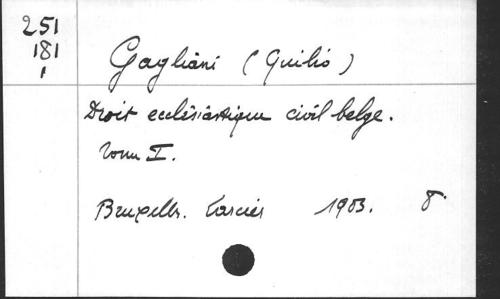 251
181
1
Gagliani (Guilio)
Droit ecclésiastique civil belge.
Tome I.
Bruxelles. Larcier 1903. 8°